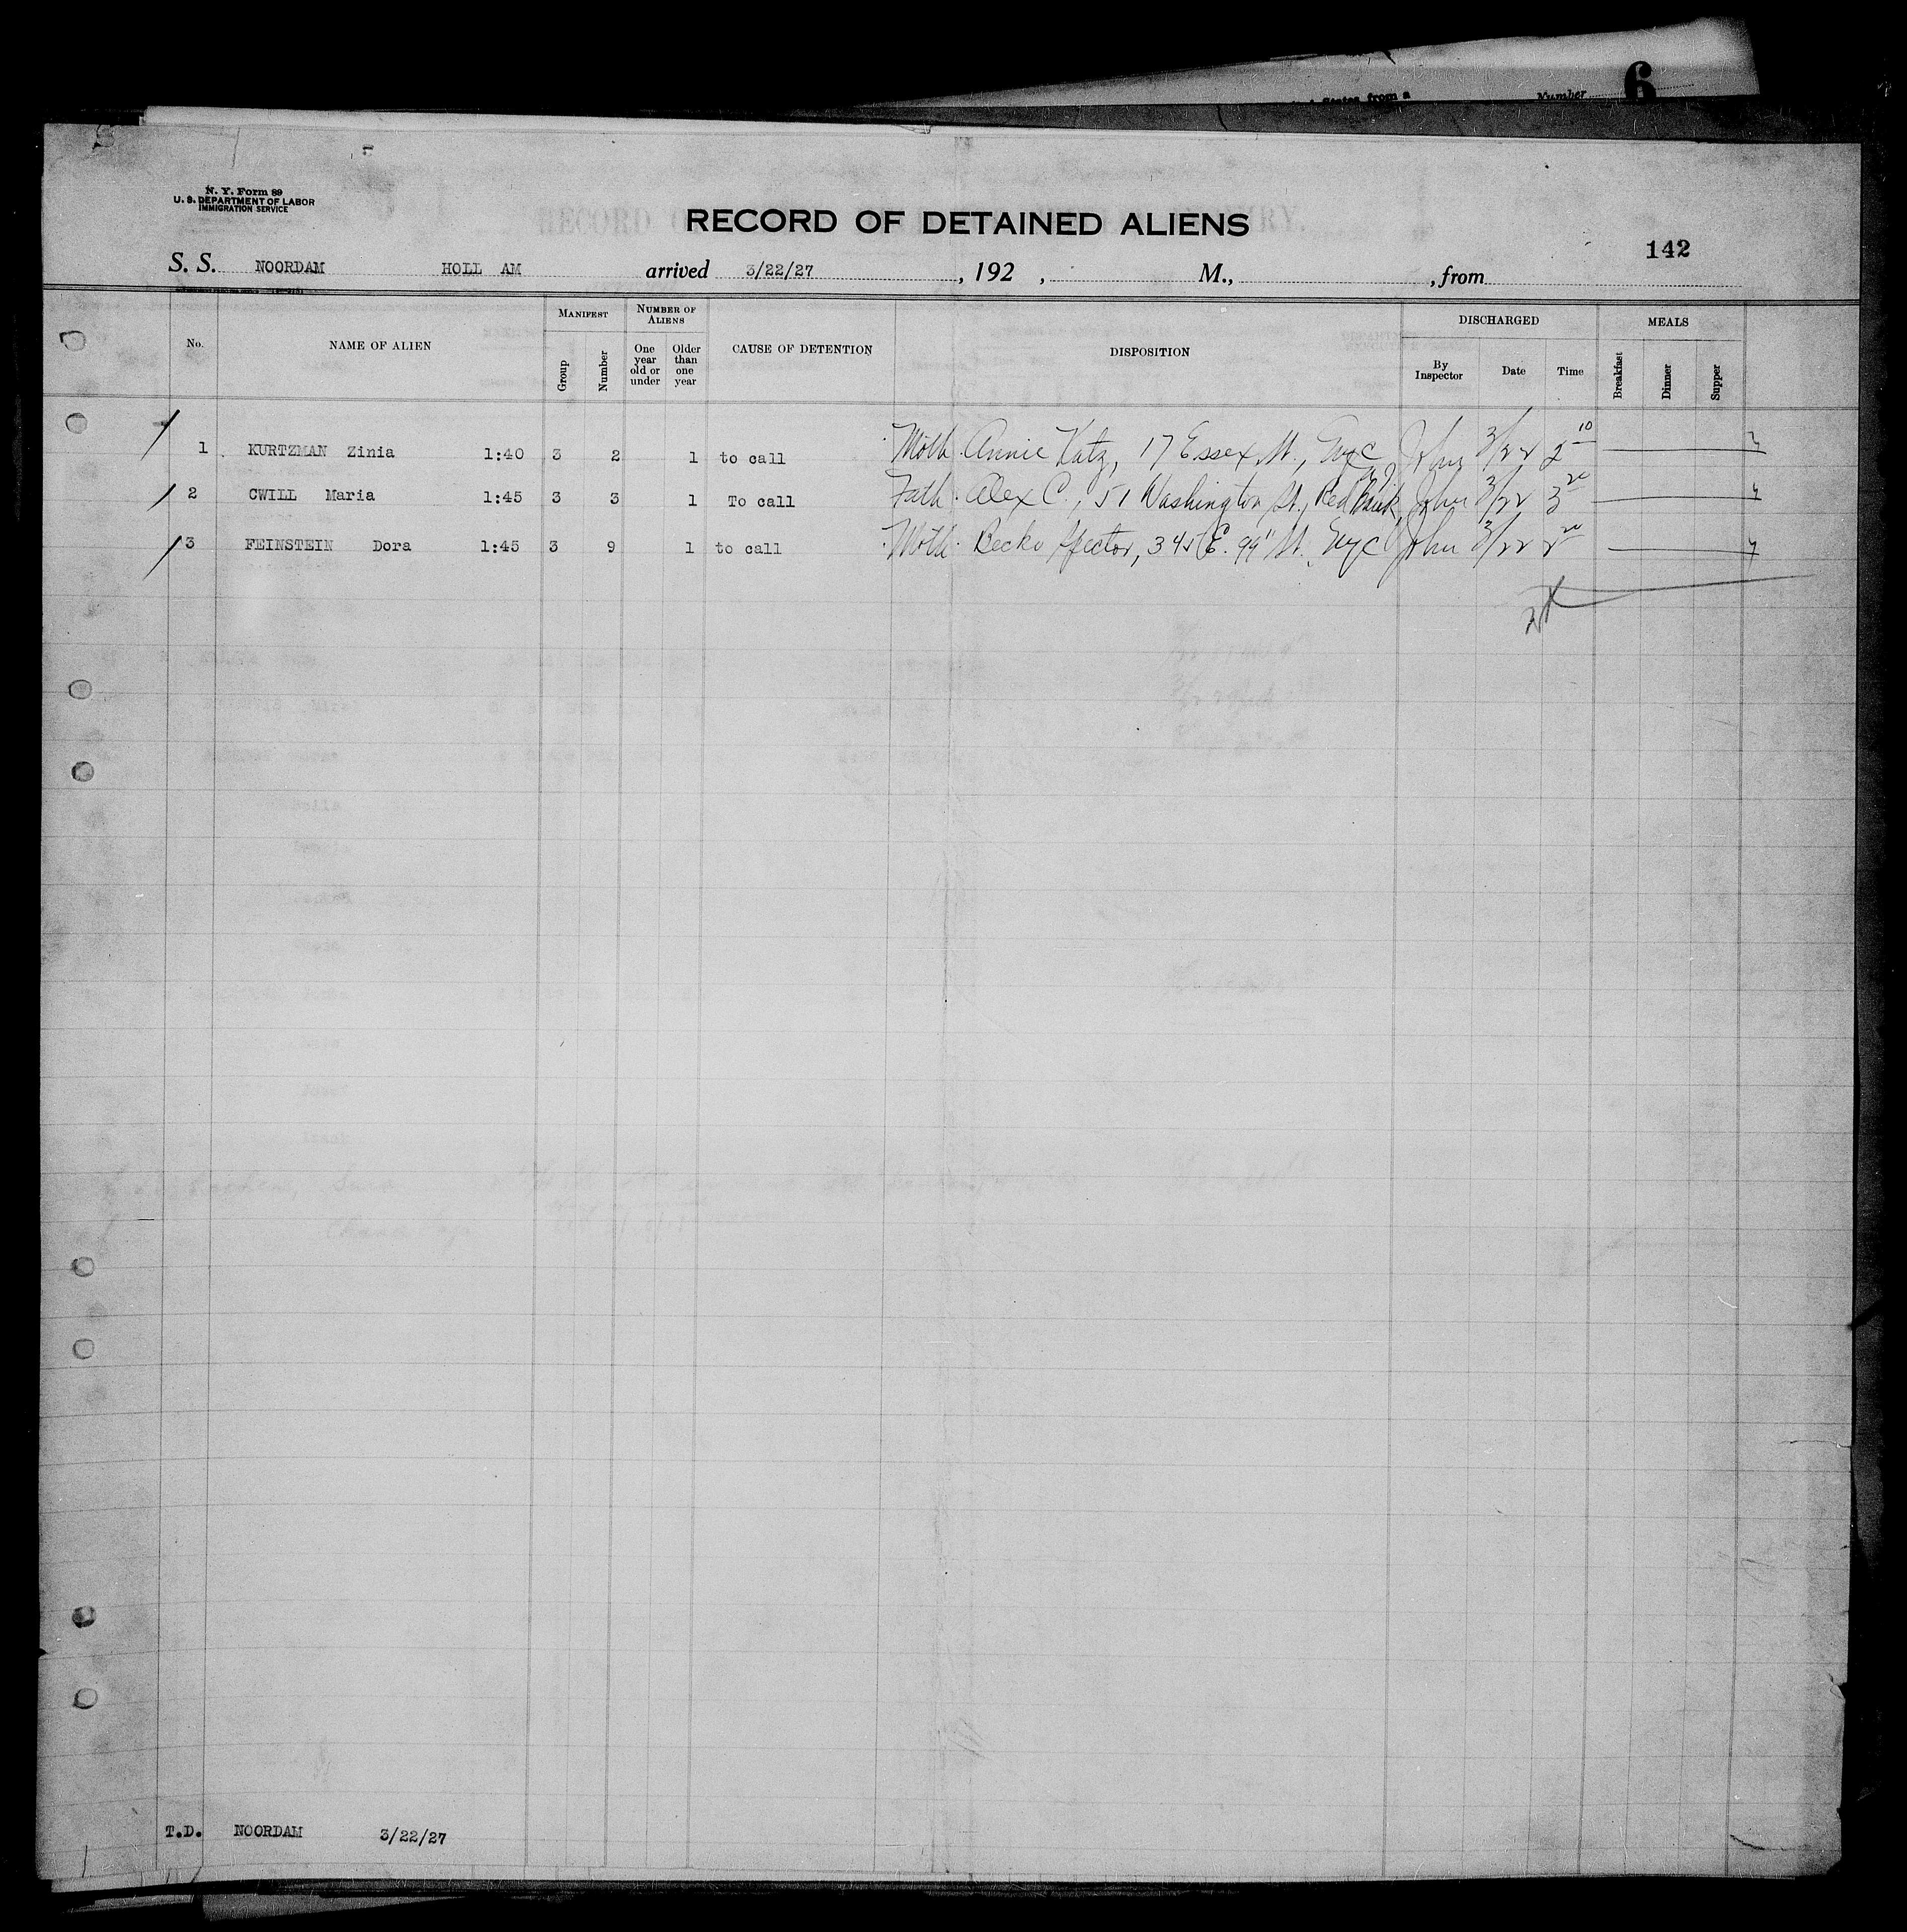 ited States from a Number 6
N. Y. Form 89
U. S. DEPARTMENT OF LABOR
IMMIGRATION SERVICE
RECORD OF DETAINED ALIENS
142
S. S. NOORDAM HOLL AM arrived 3/22/27 , 192 , M., , from
No. NAME OF ALIEN MANIFEST Group Number NUMBER OF ALIENS One year old or under Older than one year CAUSE OF DETENTION DISPOSITION DISCHARGED By Inspector Date Time MEALS Breakfast Dinner Supper
1 KURTZMAN Zinia 1:40 3 2 1 to call Moth. Annie Katz, 17 Essex St., Nyc John 3/22 2 10
2 CWILL Maria 1:45 3 3 1 To call Fath. Alex C., 51 Washington St., Red Bank NJ John 3/22 3 20
3 FEINSTEIN Dora 1:45 3 9 1 to call Moth. Becky Spector, 345 E. 99" St. Nyc John 3/22 2 20
T.D. NOORDAM 3/22/27